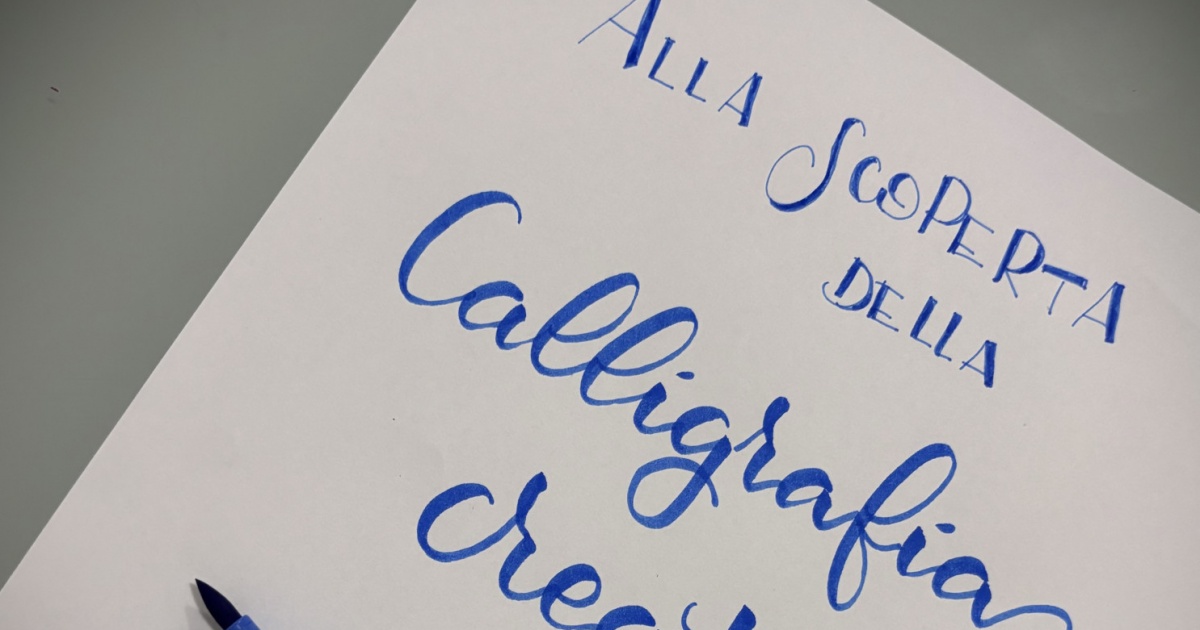 ALLA SCOPERTA
DELLA
Calligrafia